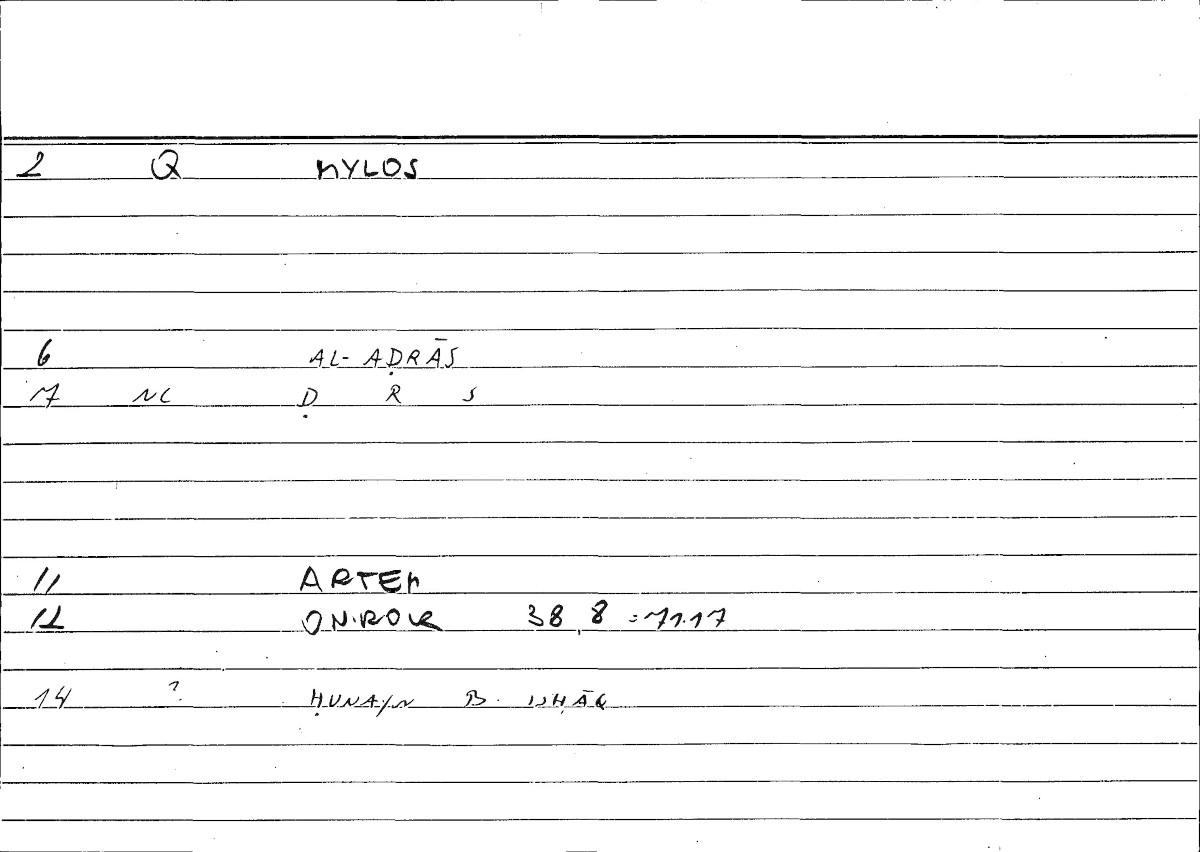 2 Q MYLOS
6 AL-AḌRĀS
7 NC Ḍ R S
11 ARTEM
12 ONIROK 38,8 = 71.17
14 ? ḤUNAYN B. ISḤĀQ